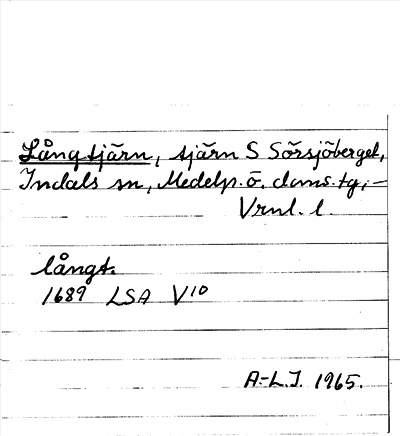 Långtjärn, tjärn S Sörsjöberget,
Indals sn, Medelp. ö. doms. tg, –
Vrnl. l.
långt.
1689 LSA V10
A.-L.J. 1965.